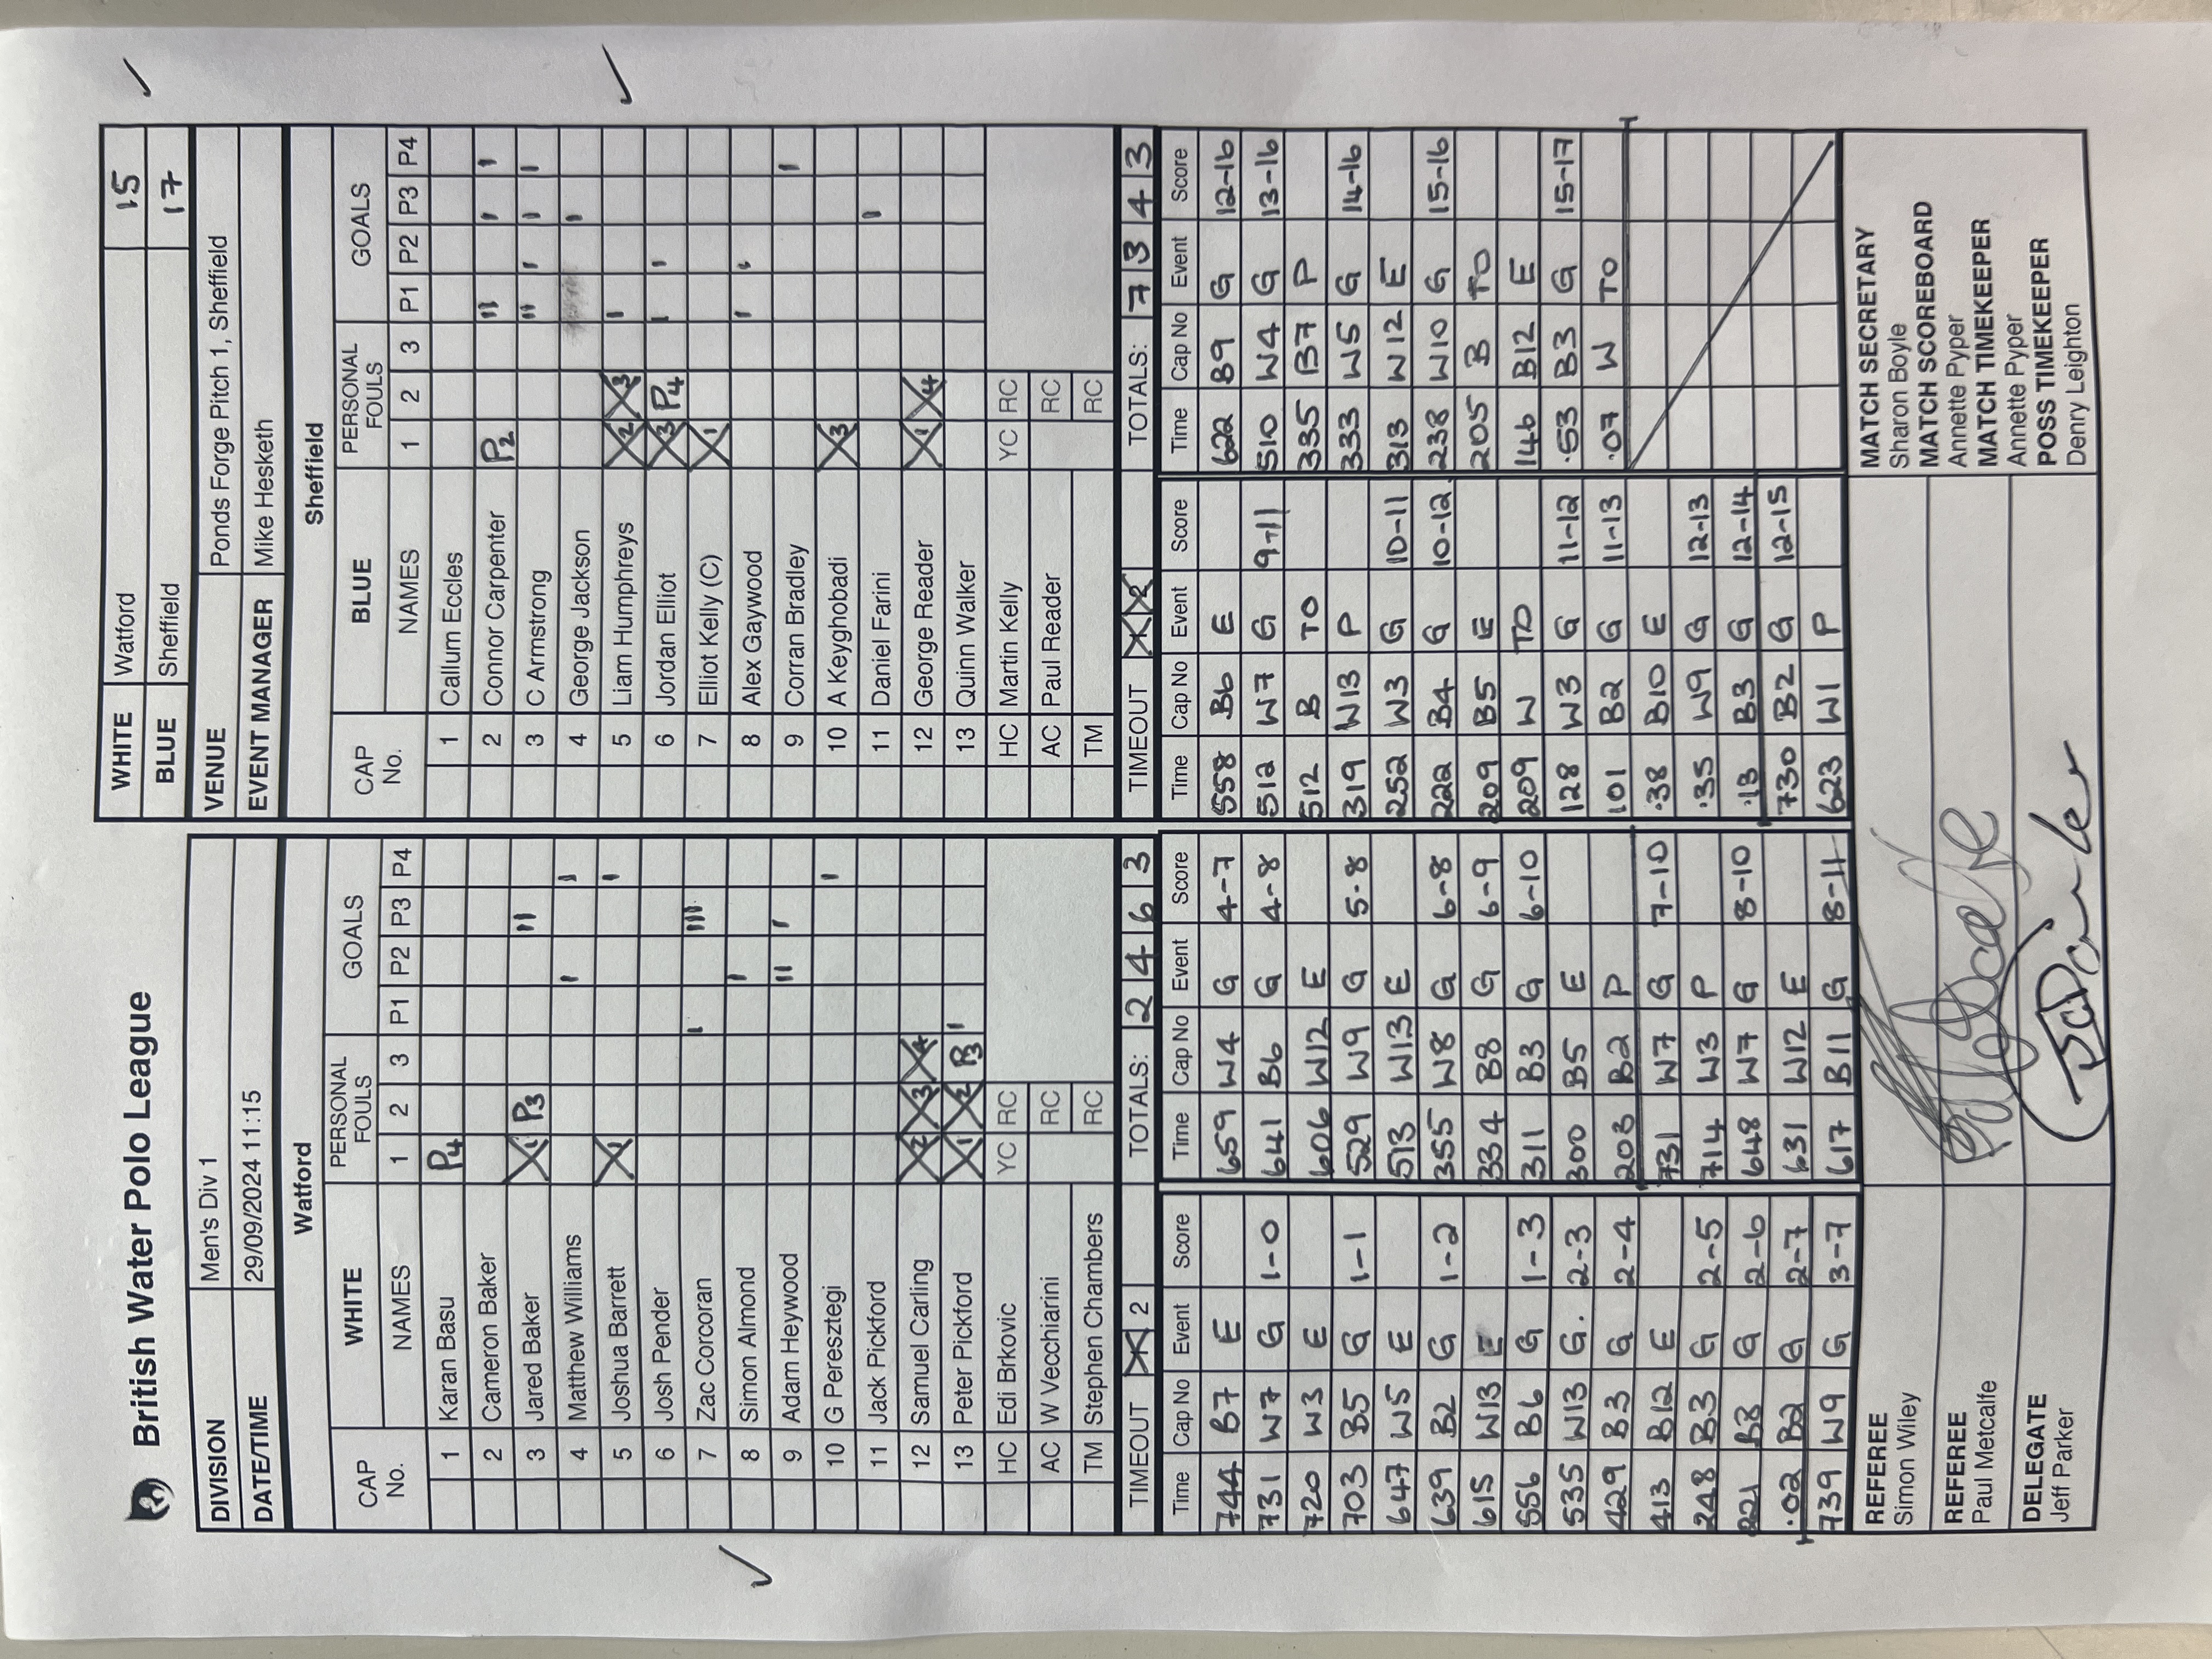 British Water Polo League
WHITE Watford 15
BLUE Sheffield 17
DIVISION Men's Div 1
DATE/TIME 29/09/2024 11:15
VENUE Ponds Forge Pitch 1, Sheffield
EVENT MANAGER Mike Hesketh
Watford
CAP No. WHITE NAMES PERSONAL FOULS 1 2 3 GOALS P1 P2 P3 P4
1 Karan Basu P4
2 Cameron Baker
3 Jared Baker X1 P3 II
4 Matthew Williams I I
5 Joshua Barrett X1 I
6 Josh Pender
7 Zac Corcoran I III
8 Simon Almond I
9 Adam Heywood II I
10 G Peresztegi I
11 Jack Pickford
12 Samuel Carling X2 X3 X4
13 Peter Pickford X1 X2 P3 I
HC Edi Brkovic YC RC
AC W Vecchiarini RC
TM Stephen Chambers RC
TIMEOUT X 2 TOTALS: 2 4 6 3
Sheffield
CAP No. BLUE NAMES PERSONAL FOULS 1 2 3 GOALS P1 P2 P3 P4
1 Callum Eccles
2 Connor Carpenter P2 II I I
3 C Armstrong II I I I
4 George Jackson I
5 Liam Humphreys X2 X3 I
6 Jordan Elliot X3 P4 I I
7 Elliot Kelly (C) X1
8 Alex Gaywood I I
9 Corran Bradley I
10 A Keyghobadi X3
11 Daniel Farini I
12 George Reader X1 X4
13 Quinn Walker
HC Martin Kelly YC RC
AC Paul Reader RC
TM RC
TIMEOUT X X TOTALS: 7 3 4 3
Time Cap No Event Score
744 B7 E
731 W7 G 1-0
720 W3 E
703 B5 G 1-1
647 W5 E
639 B2 G 1-2
615 W13 E
556 B6 G 1-3
535 W13 G. 2-3
429 B3 G 2-4
413 B12 E
248 B3 G 2-5
221 B8 G 2-6
.02 B2 G 2-7
739 W9 G 3-7
Time Cap No Event Score
659 W4 G 4-7
641 B6 G 4-8
606 W12 E
529 W9 G 5-8
513 W13 E
355 W8 G 6-8
334 B8 G 6-9
311 B3 G 6-10
300 B5 E
203 B2 P
731 W7 G 7-10
714 W3 P
648 W7 G 8-10
631 W12 E
617 B11 G 8-11
Time Cap No Event Score
558 B6 E
512 W7 G 9-11
512 B TO
319 W13 P
252 W3 G 10-11
222 B4 G 10-12
209 B5 E
209 W TO
128 W3 G 11-12
101 B2 G 11-13
.38 B10 E
.35 W9 G 12-13
.13 B3 G 12-14
730 B2 G 12-15
623 W1 P
Time Cap No Event Score
622 B9 G 12-16
510 W4 G 13-16
335 B7 P
333 W5 G 14-16
313 W12 E
238 W10 G 15-16
205 B TO
146 B12 E
.53 B3 G 15-17
.07 W TO
REFEREE
Simon Wiley
REFEREE
Paul Metcalfe
DELEGATE
Jeff Parker
MATCH SECRETARY
Sharon Boyle
MATCH SCOREBOARD
Annette Pyper
MATCH TIMEKEEPER
Annette Pyper
POSS TIMEKEEPER
Denny Leighton